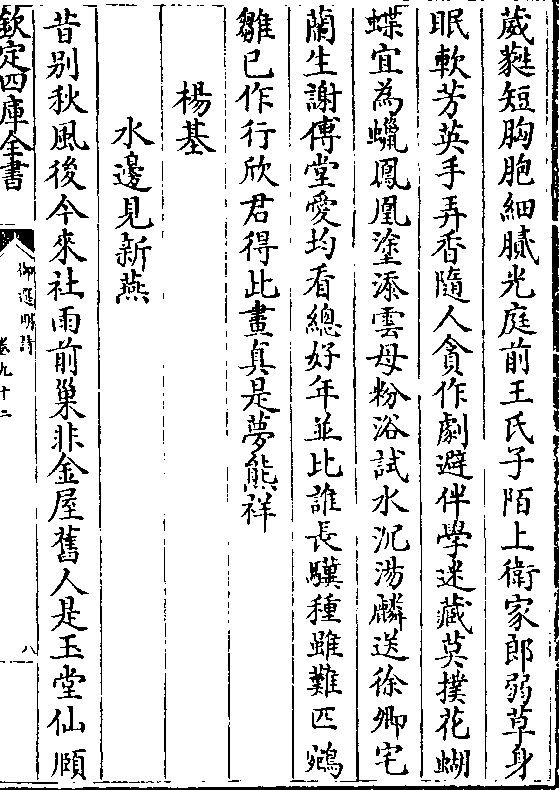 葳蕤短胸胞細膩光庭前王氏子陌上衛家郎弱草身
眠軟芳英手弄香隨人貪作劇避伴學迷藏莫撲花蝴
蝶宜為蠟鳳凰塗添雲母粉浴試水沉湯麟送徐卿宅
蘭生謝傅堂愛均看總好年並比誰長驥種雖難匹鵷
雛已作行欣君得此畫真是夢熊祥
楊基
水邊見新燕
昔别秋風後今來社雨前巢非金屋舊人是玉堂仙頋
欽定四庫全書
御選明詩
卷九十二
八